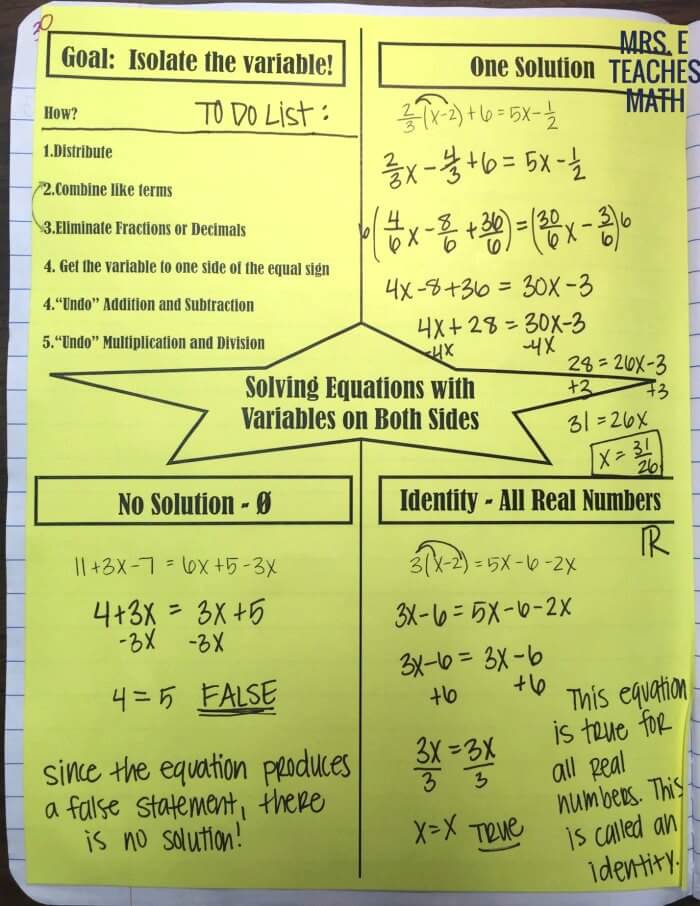 30
MRS. E
TEACHES
MATH
Goal: Isolate the variable!
How? TO DO LIST:
1.Distribute
2.Combine like terms
3.Eliminate Fractions or Decimals
4. Get the variable to one side of the equal sign
4.“Undo” Addition and Subtraction
5.“Undo” Multiplication and Division
One Solution
2/3(x-2)+6=5x-1/2
2/3x-4/3+6=5x-1/2
6(4/6x-8/6+36/6)=(30/6x-3/6)6
4x-8+36=30x-3
4x+28=30x-3
-4x -4x
28=26x-3
+3 +3
31=26x
x=31/26
Solving Equations with
Variables on Both Sides
No Solution - Ø
11+3x-7=6x+5-3x
4+3x=3x+5
-3x -3x
4=5 FALSE
since the equation produces
a false statement, there
is no solution!
Identity - All Real Numbers
ℝ
3(x-2)=5x-6-2x
3x-6=5x-6-2x
3x-6=3x-6
+6 +6
3x/3=3x/3
x=x TRUE
This equation
is true for
all real
numbers. This
is called an
identity.